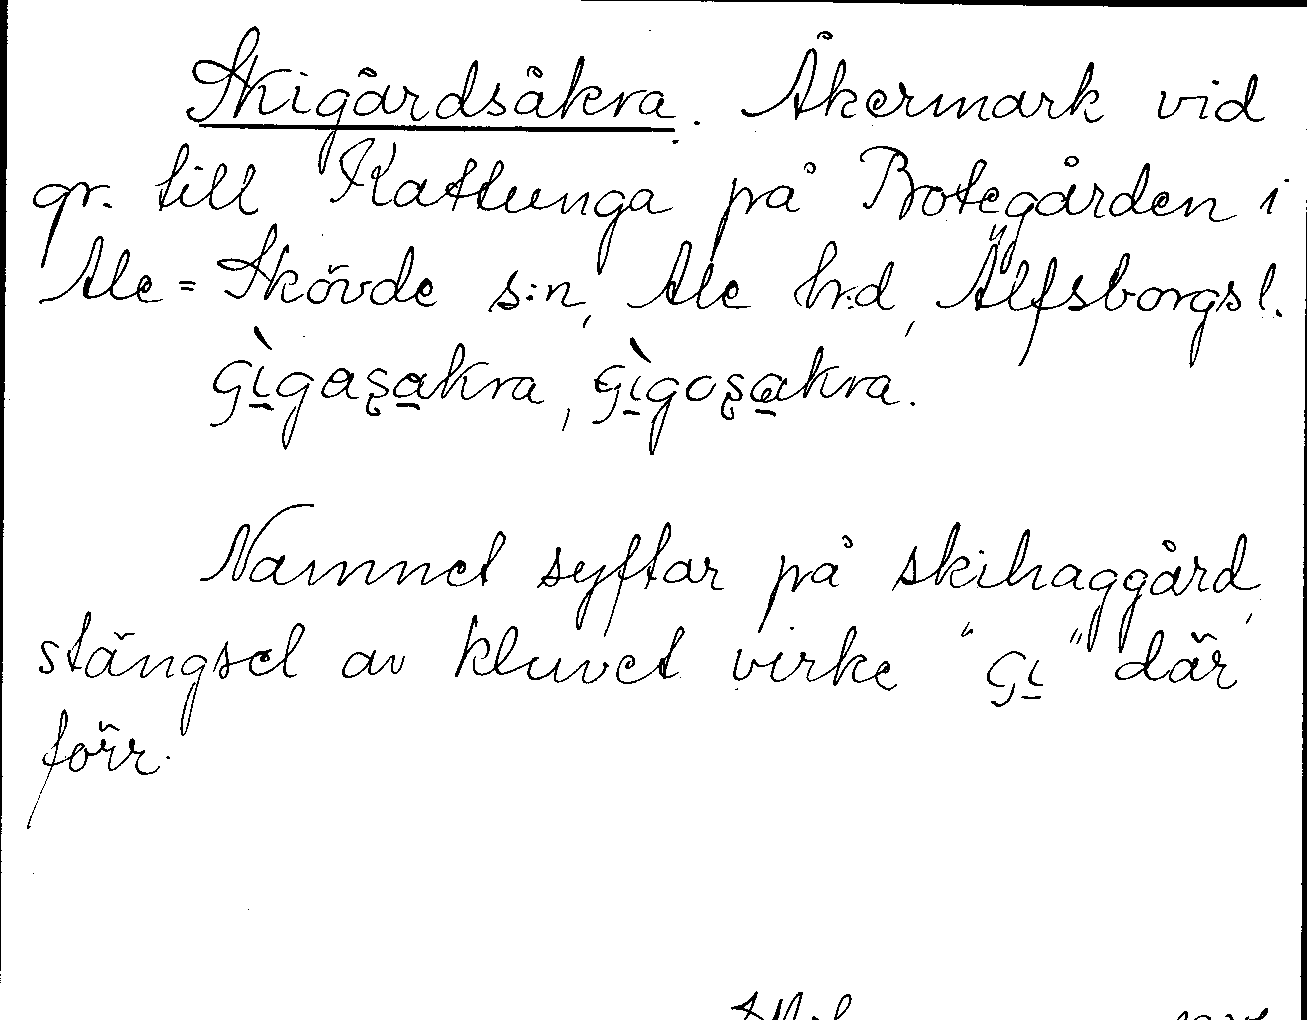 Skigårdsåkra. Åkermark vid
gr. till Kattunga på Botegården i
Ale=Skövde s:n, Ale hrd, Älfsborgs l.
ɕì̠gaʂa̠kra, ɕì̠goʂa̠kra.
Namnet syftar på skihaggård,
stängsel av kluvet virke "ɕi̠" där
förr.